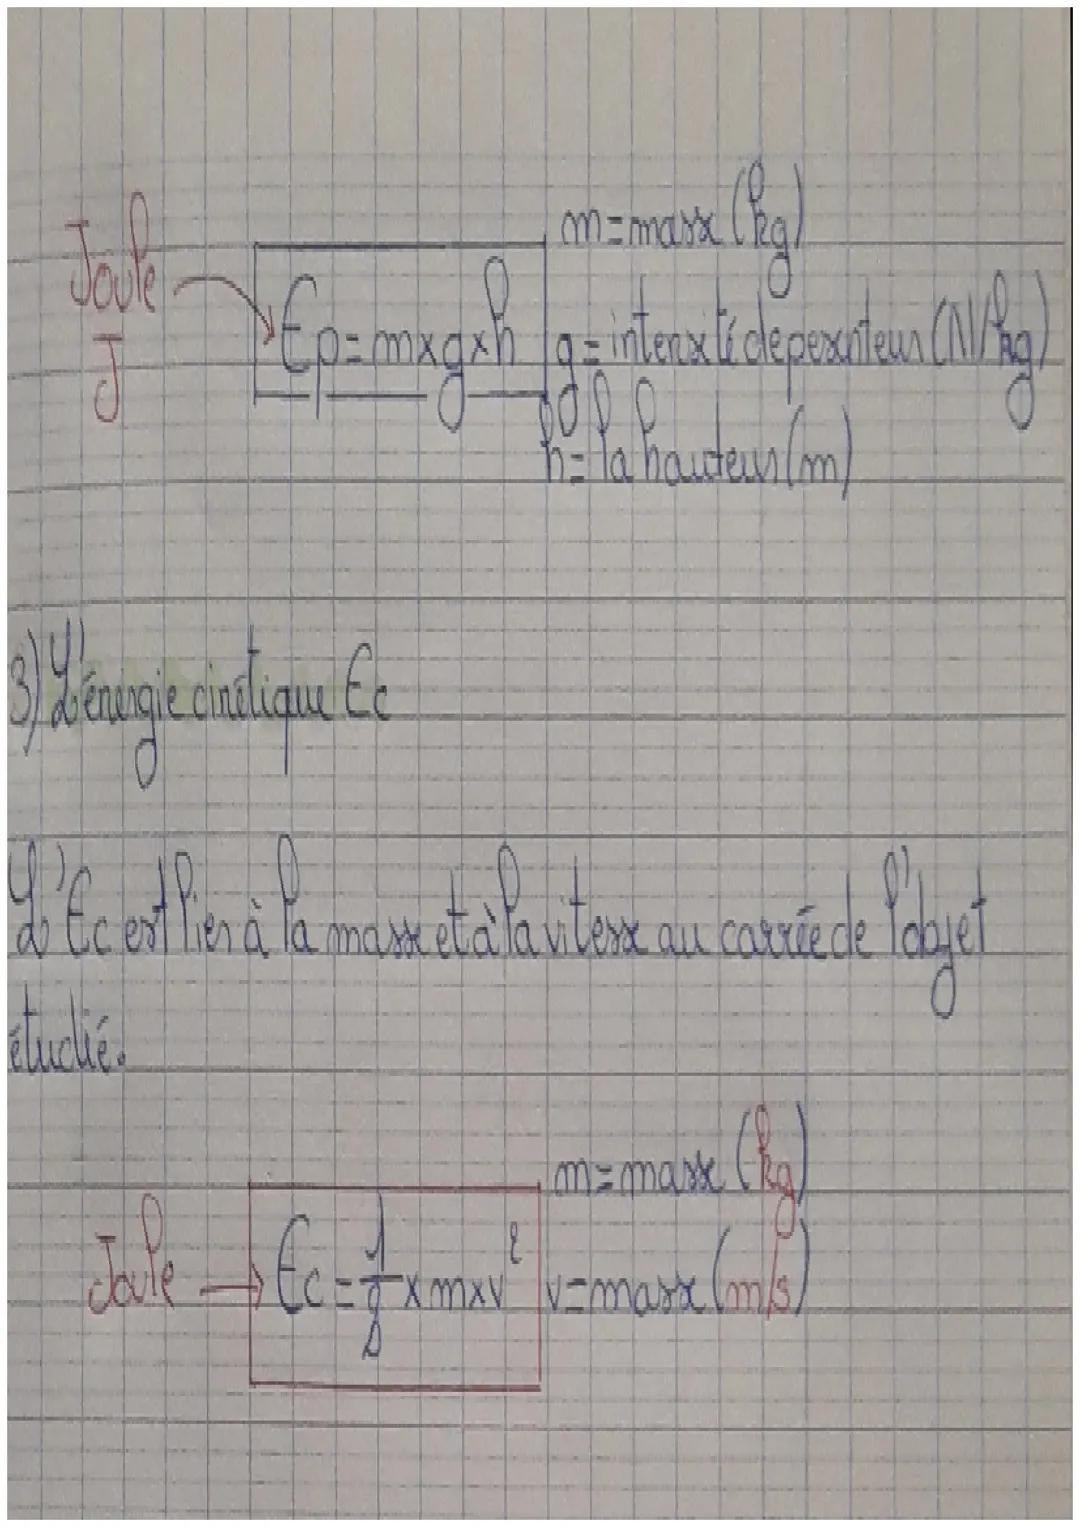 m = masse (kg)
Joule
J
Ep = m x g x h
g = intensité de pesenteur (N/kg)
h = la hauteur (m)
3) L'énergie cinétique Ec
L'Ec est lier à la masse et à la vitesse au carrée de l'objet
étudié.
m = masse (kg)
Joule → Ec = 1/2 x m x v² v = masse (m/s)